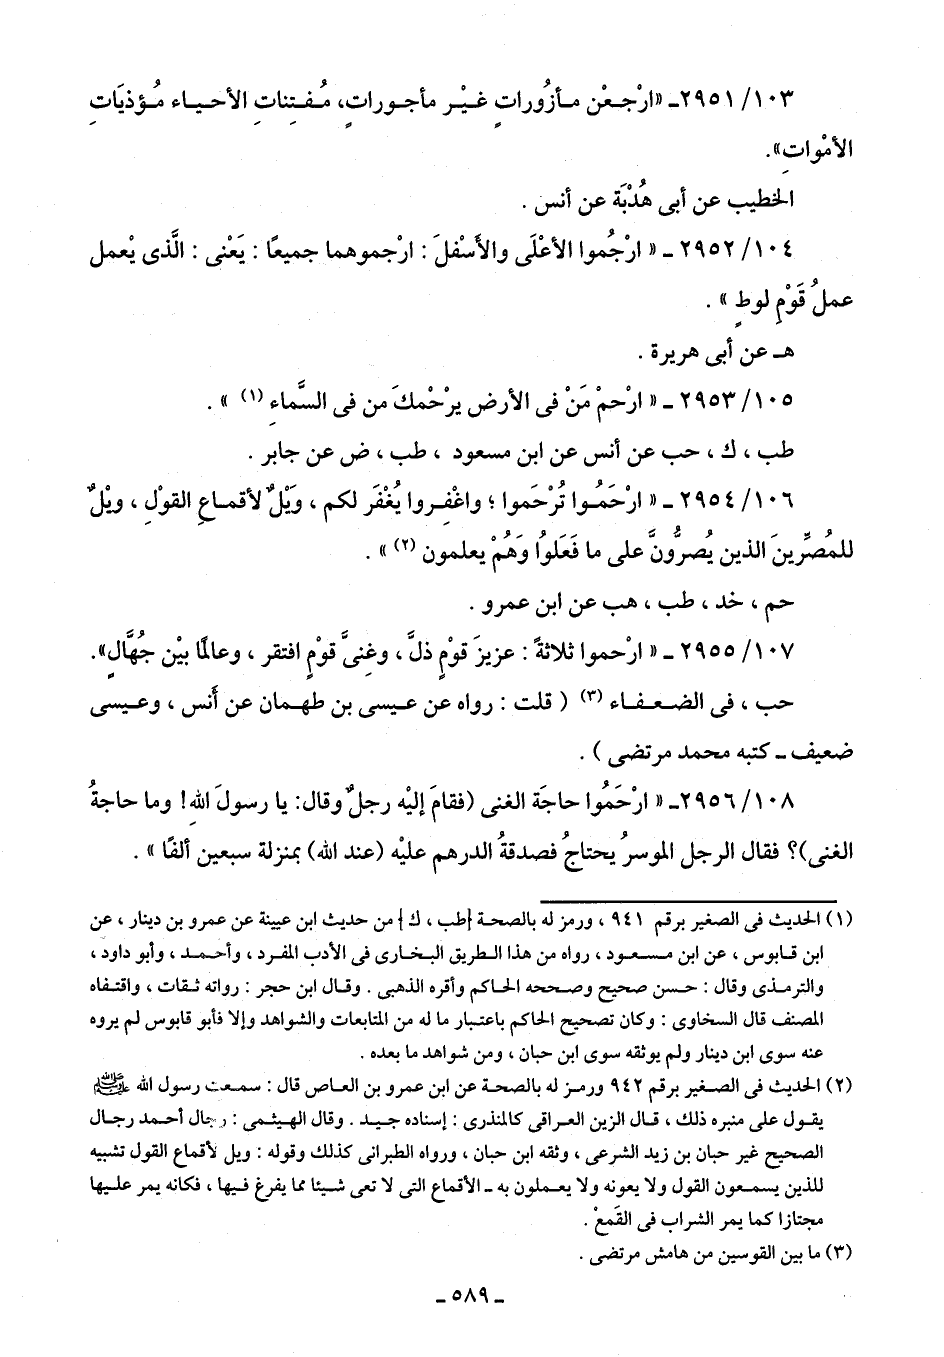 ٢٩٥١/١٠٣ـ «ارْجِعْن مأزُوراتٍ غيْر مأجوراتٍ، مُفتِناتِ الأحياء مُؤذيَاتِ
الأمْواتِ».
الخطيب عن أبى هُدْبَة عن أنس .
٢٩٥٢/١٠٤ ـ « ارْجُموا الأعْلَى والأسْفلَ : ارْجموهما جميعًا : يَعْنى : الَّذى يْعمل
عملُ قَوْمِ لوطٍ » .
هـ عن أبى هريرة .
٢٩٥٣/١٠٥ ـ « ارْحمْ مَنْ فى الأرض يرْحْمكَ من فى السَّماءِ (١) » .
طب ، ك ، حب عن أنس عن ابن مسعود ، طب ، ض عن جابر .
٢٩٥٤/١٠٦ ـ « ارْحَمُوا تُرْحَموا ؛ واغْفِروا يُغْفَر لكم ، ويَْلٌ لأقماعِ القوْلِ ، ويْلٌ
للمُصرِّينَ الذين يُصرُّونَّ على ما فَعَلَواُ وَهُمْ يعلمون (٢) » .
حم ، خد ، طب ، هب عن ابن عمرو .
٢٩٥٥/١٠٧ ـ « ارْحموا ثلاثةً : عزيزَ قوْمٍ ذلَّ ، وغنِىَّ قوْمٍ افتقر ، وعالمًا بيْن جُهَّالٍ».
حب ، فى الضعفاء (٣) ( قلت : رواه عن عيسى بن طهمان عن أَنس ، وعيسى
ضعيف ـ كتبه محمد مرتضى ) .
٢٩٥٦/١٠٨ـ « ارْحَمُوا حاجَة الغنى (فقامَ إليْه رجلٌ وقال: يا رسولَ اللهِ! وما حاجةُ
الغنى)؟ فقال الرجل الموسرُ يحتاجُ فصدقةُ الدرهم عليْه (عند الله) بمنزلة سبعين ألفًا » .
(١) الحديث فى الصغير برقم ٩٤١ ، ورمز له بالصحة {طب ، ك} من حديث ابن عيينة عن عمرو بن دينار ، عن
ابن قابوس ، عن ابن مسعود ، رواه من هذا الطريق البخارى فى الأدب المفرد ، وأحمد ، وأبو داود ،
والترمذى وقال : حسن صحيح وصححه الحاكم وأقره الذهبى . وقال ابن حجر : رواته ثقات ، واقتفاه
المصنف قال السخاوى : وكان تصحيح الحاكم باعتبار ما له من المتابعات والشواهد وإلا فأبو قابوس لم يروه
عنه سوى ابن دينار ولم يوثقه سوى ابن حبان ، ومن شواهد ما بعده .
(٢) الحديث فى الصغير برقم ٩٤٢ ورمز له بالصحة عن ابن عمرو بن العاص قال : سمعت رسول الله ﷺ
يقول على منبره ذلك ، قال الزين العراقى كالمنذرى : إسناده جيد . وقال الهيثمى : رجال أحمد رجال
الصحيح غير حبان بن زيد الشرعى ، وثقه ابن حبان ، ورواه الطبرانى كذلك وقوله : ويل لأقماع القول تشبيه
للذين يسمعون القول ولا يعونه ولا يعملون به ـ الأقماع التى لا تعى شيئا مما يفرغ فيها ، فكانه يمر عليها
مجتازا كما يمر الشراب فى القَمعْ .
(٣) ما بين القوسين من هامش مرتضى .
ـ ٥٨٩ ـ